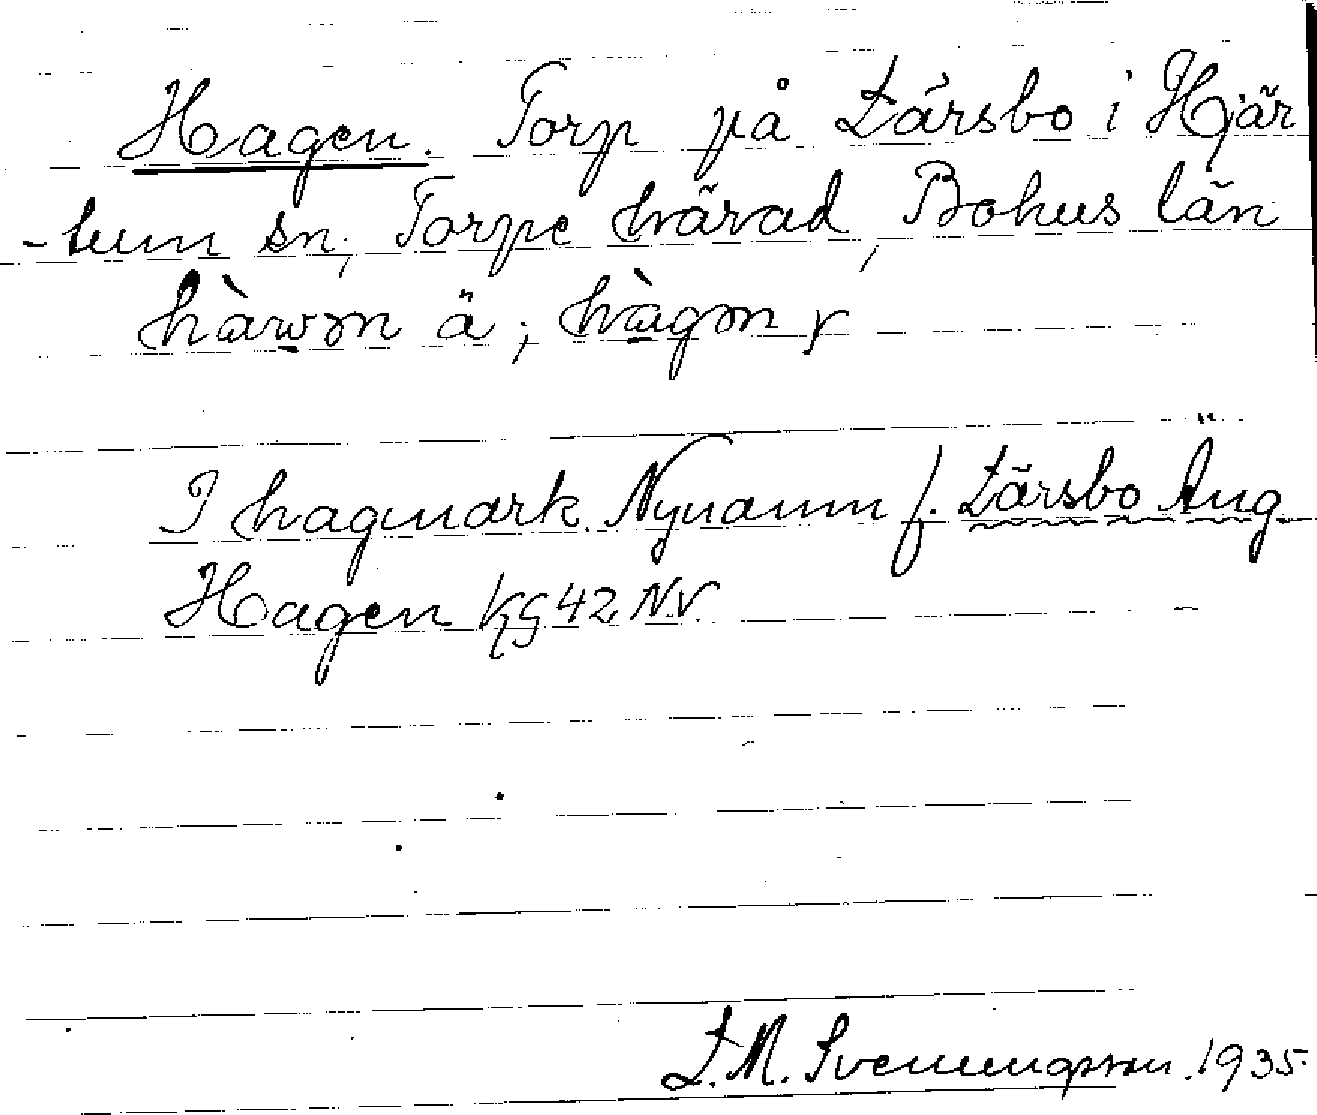 Hagen. Torp på Lärsbo i Hjär
-tum sn, Torpe härad, Bohus län
hàwən ä; hàgən y
I hagmark. Nynamn f. Lärsbo Äng
Hagen kg 42 N.V.
L. M. Svenungsson. 1935.